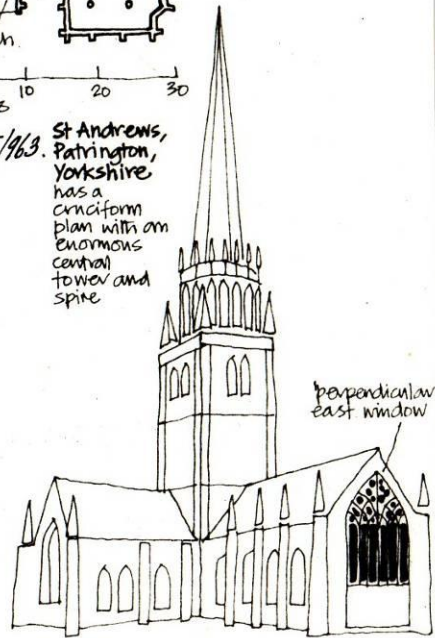 10 20 30
St Andrews,
Patrington,
Yorkshire
has a
cruciform
plan with an
enormous
central
tower and
spire
perpendicular
east window